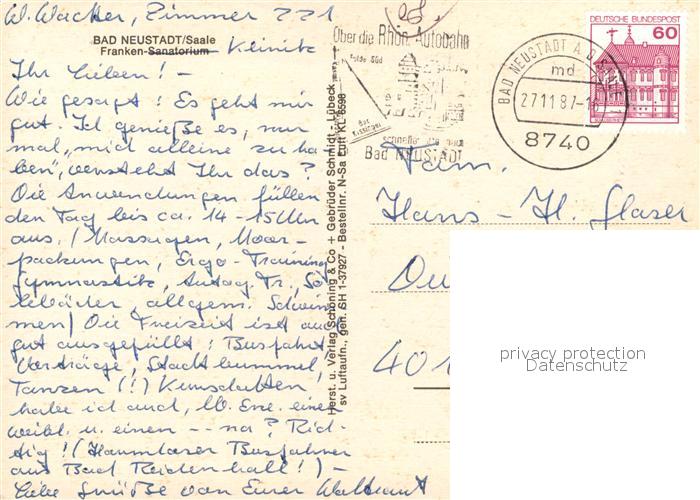 W. Wacker, Zimmer 221
BAD NEUSTADT/Saale
Franken-Sanatorium - Klinik
Ihr Lieben! -
Wie gesagt: Es geht mir
gut. Ich genieße es, nur
mal „mich alleine zu ha-
ben", versteht Ihr das?
Die Anwendungen füllen
den Tag bis ca. 14-15 Uhr
aus. (Massagen, Moor-
packungen, Ergo-Training
Gymnastik, Autog. Tr., So-
lebäder, allgem. Schwim-
men) Die Freizeit ist auch
gut ausgefüllt: Busfahrt
Vorträge, Stadtbummel,
Tanzen (!) Kumschatten
habe ich auch, einen
weibl. u. einen -- na? Rich-
tig! ( Busfahrer
aus Bad Reichenhall!) -
Liebe Grüße von Eurer Waltraut
Herst. u. Verlag Schöning & Co + Gebrüder Schmidt - Lübeck
sv Luftaufn., gen. SH 1-37927 - Bestellnr. N-Sa Luft KL 6598
Über die Rhön-Autobahn
Fulda Süd
Bad Kissingen
schneller nach
Bad NEUSTADT
BAD NEUSTADT A D S
md
27.11.87-
8740
DEUTSCHE BUNDESPOST
60
Fam.
Hans-H. Glaser
401
privacy protection
Datenschutz